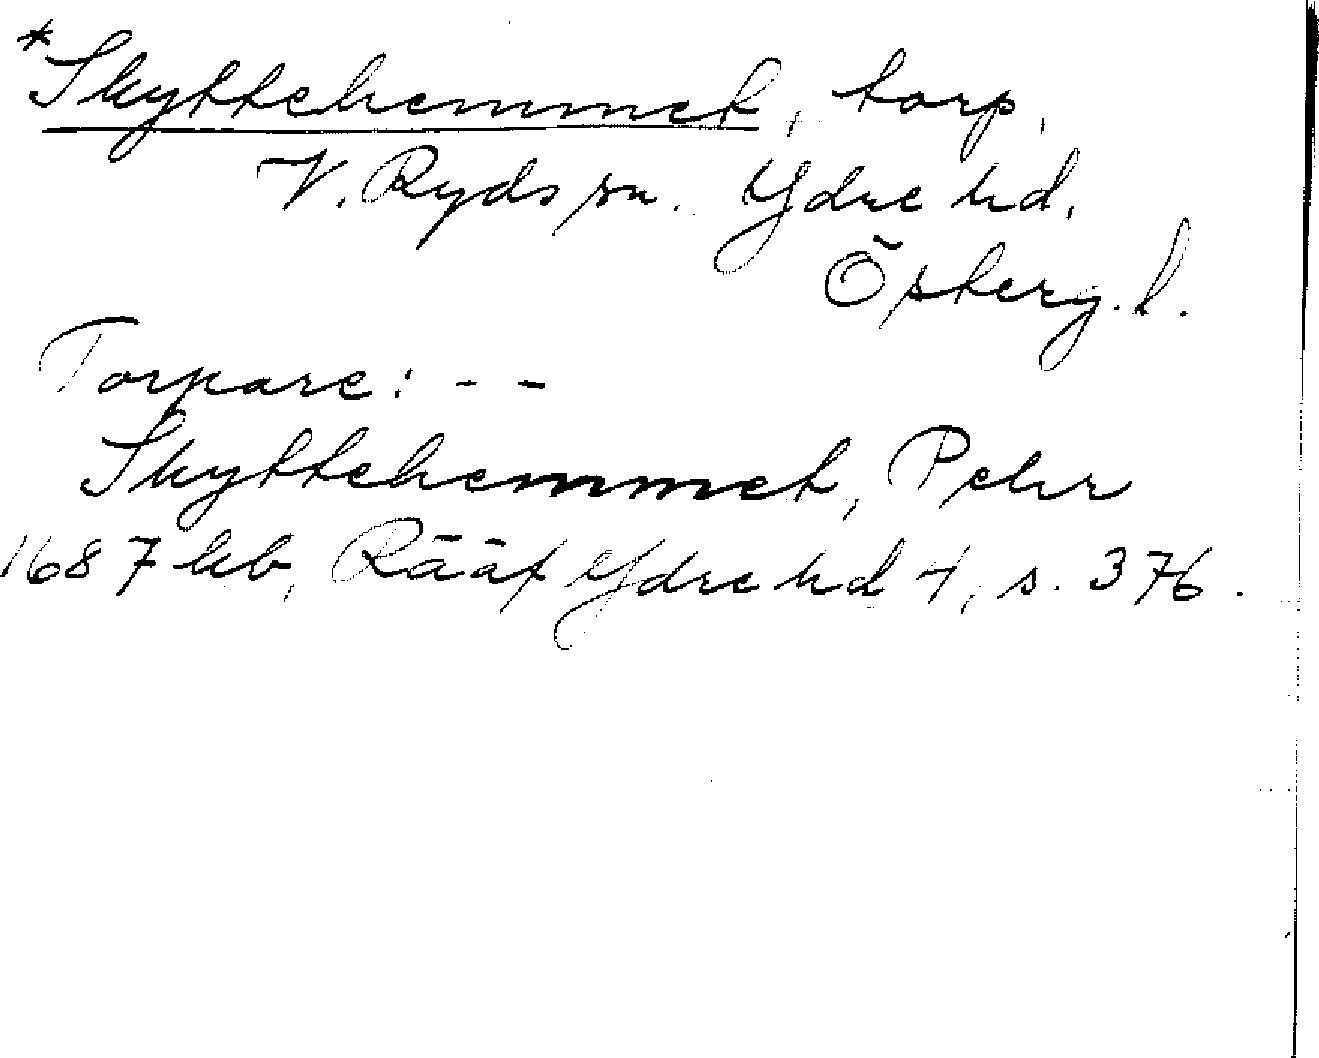 *Skyttehemmet, torp,
V. Ryds sn. Ydre hd.
Österg. l.
Torpare: - -
Skyttehemmet, Pehr
1687 kb, Rääf Ydre hd 4, s. 376.